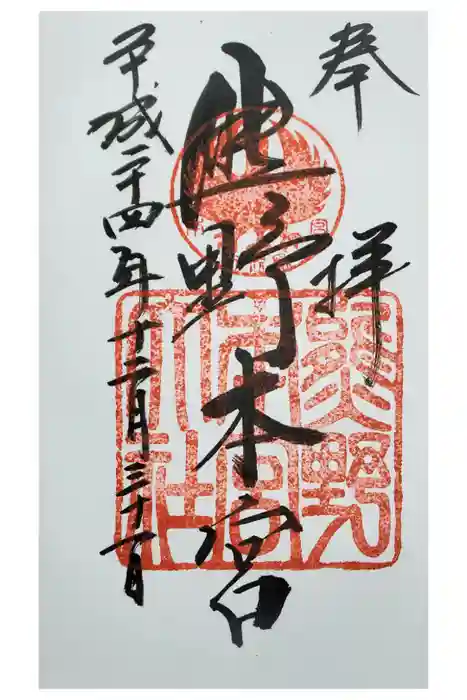 奉拝
熊野本宮
平成二十四年十二月三十一日
熊野
本宮
大社